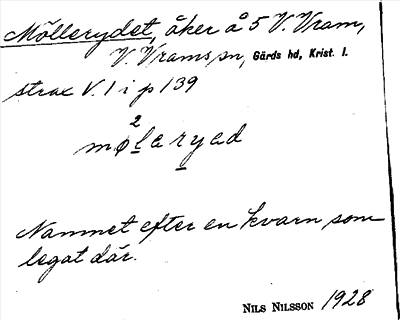 Möllerydet, åker å 5 V. Vram,
V. Vrams sn, Gärds hd, Krist. l.
strax V. 1 i p 139
2
møleryed
Namnet efter en kvarn som
legat där.
NILS NILSSON 1928